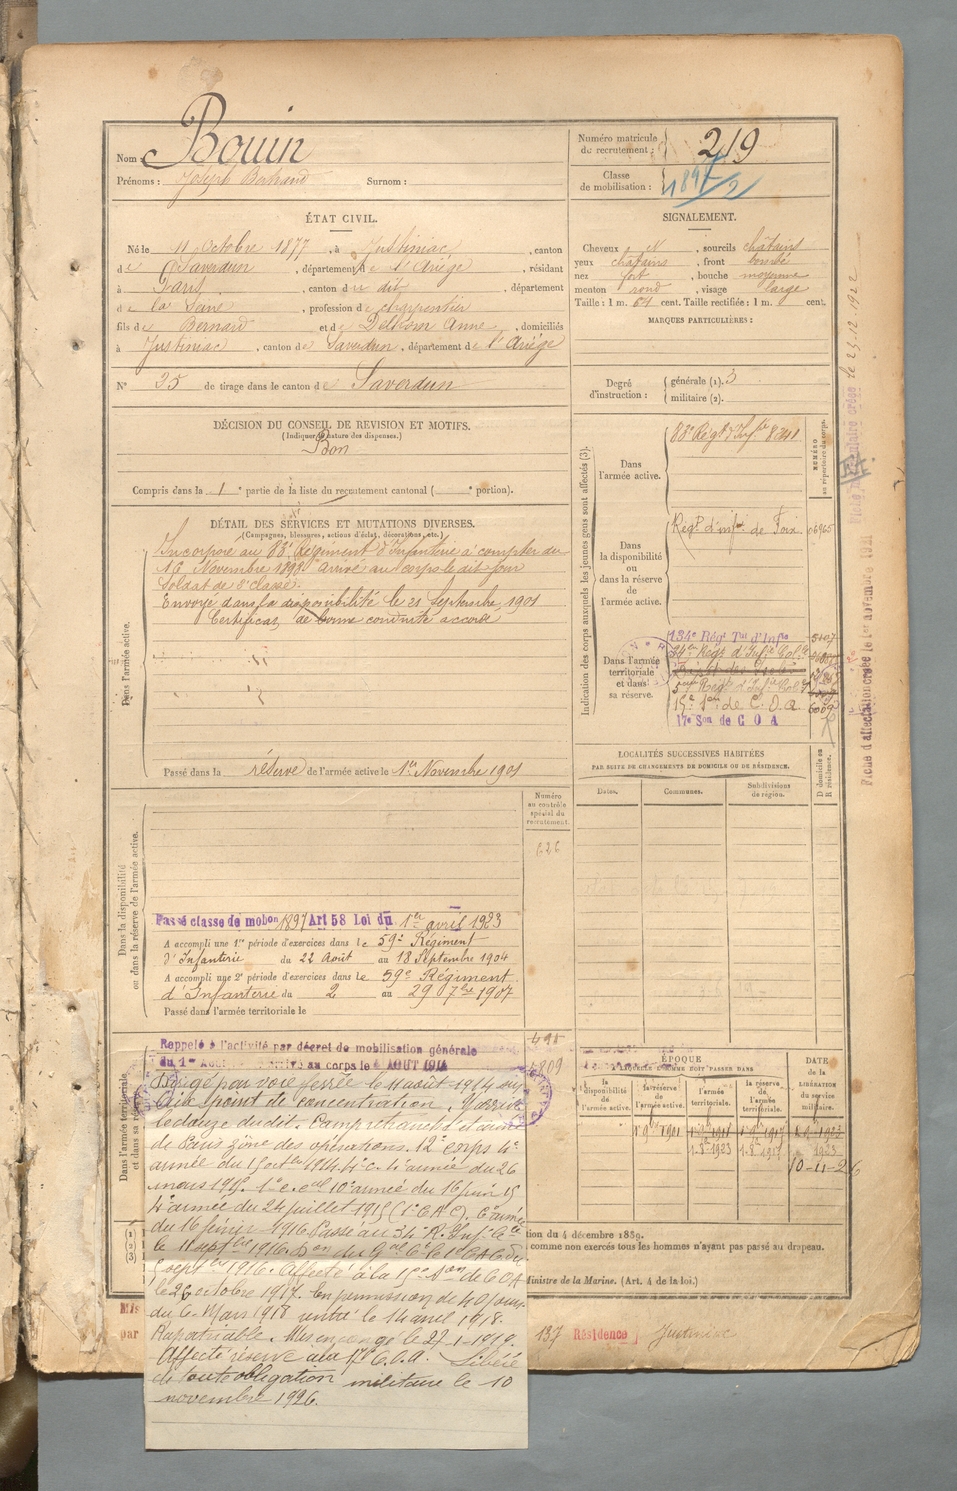 Nom : Bouin
Prénoms : Joseph Bertrand Surnom :
Numéro matricule
du recrutement : 219
Classe
de mobilisation : 1897/2
ÉTAT CIVIL.
Né le 11 Octobre 1877, à Justiniac, canton
de Saverdun, département de l'Ariège, résidant
à Paris, canton du dit, département
de la Seine, profession de charpentier
fils de Bernard et de Anne, domiciliés
à Justiniac, canton de Saverdun, département de l'Ariège
N° 35 de tirage dans le canton de Saverdun
SIGNALEMENT.
Cheveux N, sourcils châtains
yeux châtains, front bombé
nez fort, bouche moyenne
menton rond, visage large
Taille : 1 m. 64 cent. Taille rectifiée : 1 m. cent.
MARQUES PARTICULIÈRES :
Degré
d'instruction : générale (1). 3
militaire (2).
DÉCISION DU CONSEIL DE REVISION ET MOTIFS.
(Indiquer nature des dispenses.)
Bon
Compris dans la 1e partie de la liste du recrutement cantonal ( e portion).
DÉTAIL DES SERVICES ET MUTATIONS DIVERSES.
(Campagnes, blessures, actions d'éclat, décorations, etc.)
Dans l'armée active.
Incorporé au 88e Régiment d'Infanterie à compter du
16 Novembre 1898 arrivé au corps le dit jour
Soldat de 2e classe.
Envoyé dans la disponibilité le 21 Septembre 1901
Certificat de bonne conduite accordé
Passé dans la réserve de l'armée active le 1er Novembre 1901
Indication des corps auxquels les jeunes gens sont affectés (3).
NUMÉRO
au répertoire du corps.
Dans
l'armée active.
88e Régt d'Infie 8241
Dans
la disponibilité
ou
dans la réserve
de
l'armée active.
Régt d'inf. de Foix 06965
Dans l'armée
territoriale
et dans
sa réserve.
134e Régt Tal d'Infie
34e Régt d'Infie Cole
5e Régt d'Infie Cole
15e Son de C.O.A.
17e Son de C O A
LOCALITÉS SUCCESSIVES HABITÉES
PAR SUITE DE CHANGEMENTS DE DOMICILE OU DE RÉSIDENCE.
D domicile ou
R résidence.
Dates. Communes. Subdivisions
de région.
Dans la disponibilité
ou dans la réserve de l'armée active.
Numéro
au contrôle
spécial du
recrutement.
Passé classe de mobon 1897 Art 58 Loi du 1er avril 1923
A accompli une 1re période d'exercices dans le 59e Régiment
d'Infanterie du 22 Août au 18 Septembre 1904
A accompli une 2e période d'exercices dans le 59e Régiment
d'Infanterie du 2 au 29 7bre 1907
Passé dans l'armée territoriale le
Dans l'armée territoriale
et dans sa rés
Rappelé à l'activité par décret de mobilisation générale
du 1er Août arrivé au corps le AOUT 1914
Dirigé par voie ferrée le 11 août 1914 au
point de concentration. Y arrive
le douze du dit. Camp retranché
de Paris zône des opérations. 12e corps 4e
armée du 1914. 4e armée du 26
mars 1915. 10e armée du 16 juin 15
4e armée du 24 juillet 1915 (1e C.A.C). 6e armée
du 16 février 1916. Passé au 34e R. Inf. Cle
le 11 septbre 1916.
1916. Affecté à la 15e Son de C O A
le 26 octobre 1917. En permission de 40 jours
du 6 Mars 1918 rentré le 14 avril 1918.
Rapatriable. Mis en congé le 27-1-1919.
Affecté réserve aux 17e C.O.A. Libéré
de toute obligation militaire le 10
novembre 1926.
ÉPOQUE
À LAQUELLE L'HOMME DOIT PASSER DANS
la
disponibilité
de
l'armée active.
la réserve
de
l'armée active.
l'armée
territoriale.
la réserve
de
l'armée
territoriale.
DATE
de la
LIBÉRATION
du service
militaire.
1923
10-11-26
tion du 4 décembre 1889.
comme non exercés tous les hommes n'ayant pas passé au drapeau.
Ministre de la Marine. (Art. 4 de la loi.)
Mis
par
137 Résidence Justiniac
Fiche d'affectation créée le 1er novembre 1921
créée le 27.12.1922